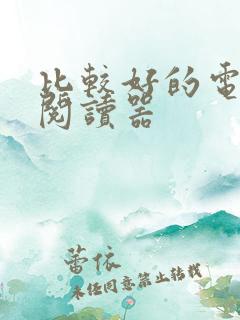 比較好的電
閱讀器
蕾依
未經同意禁止轉載